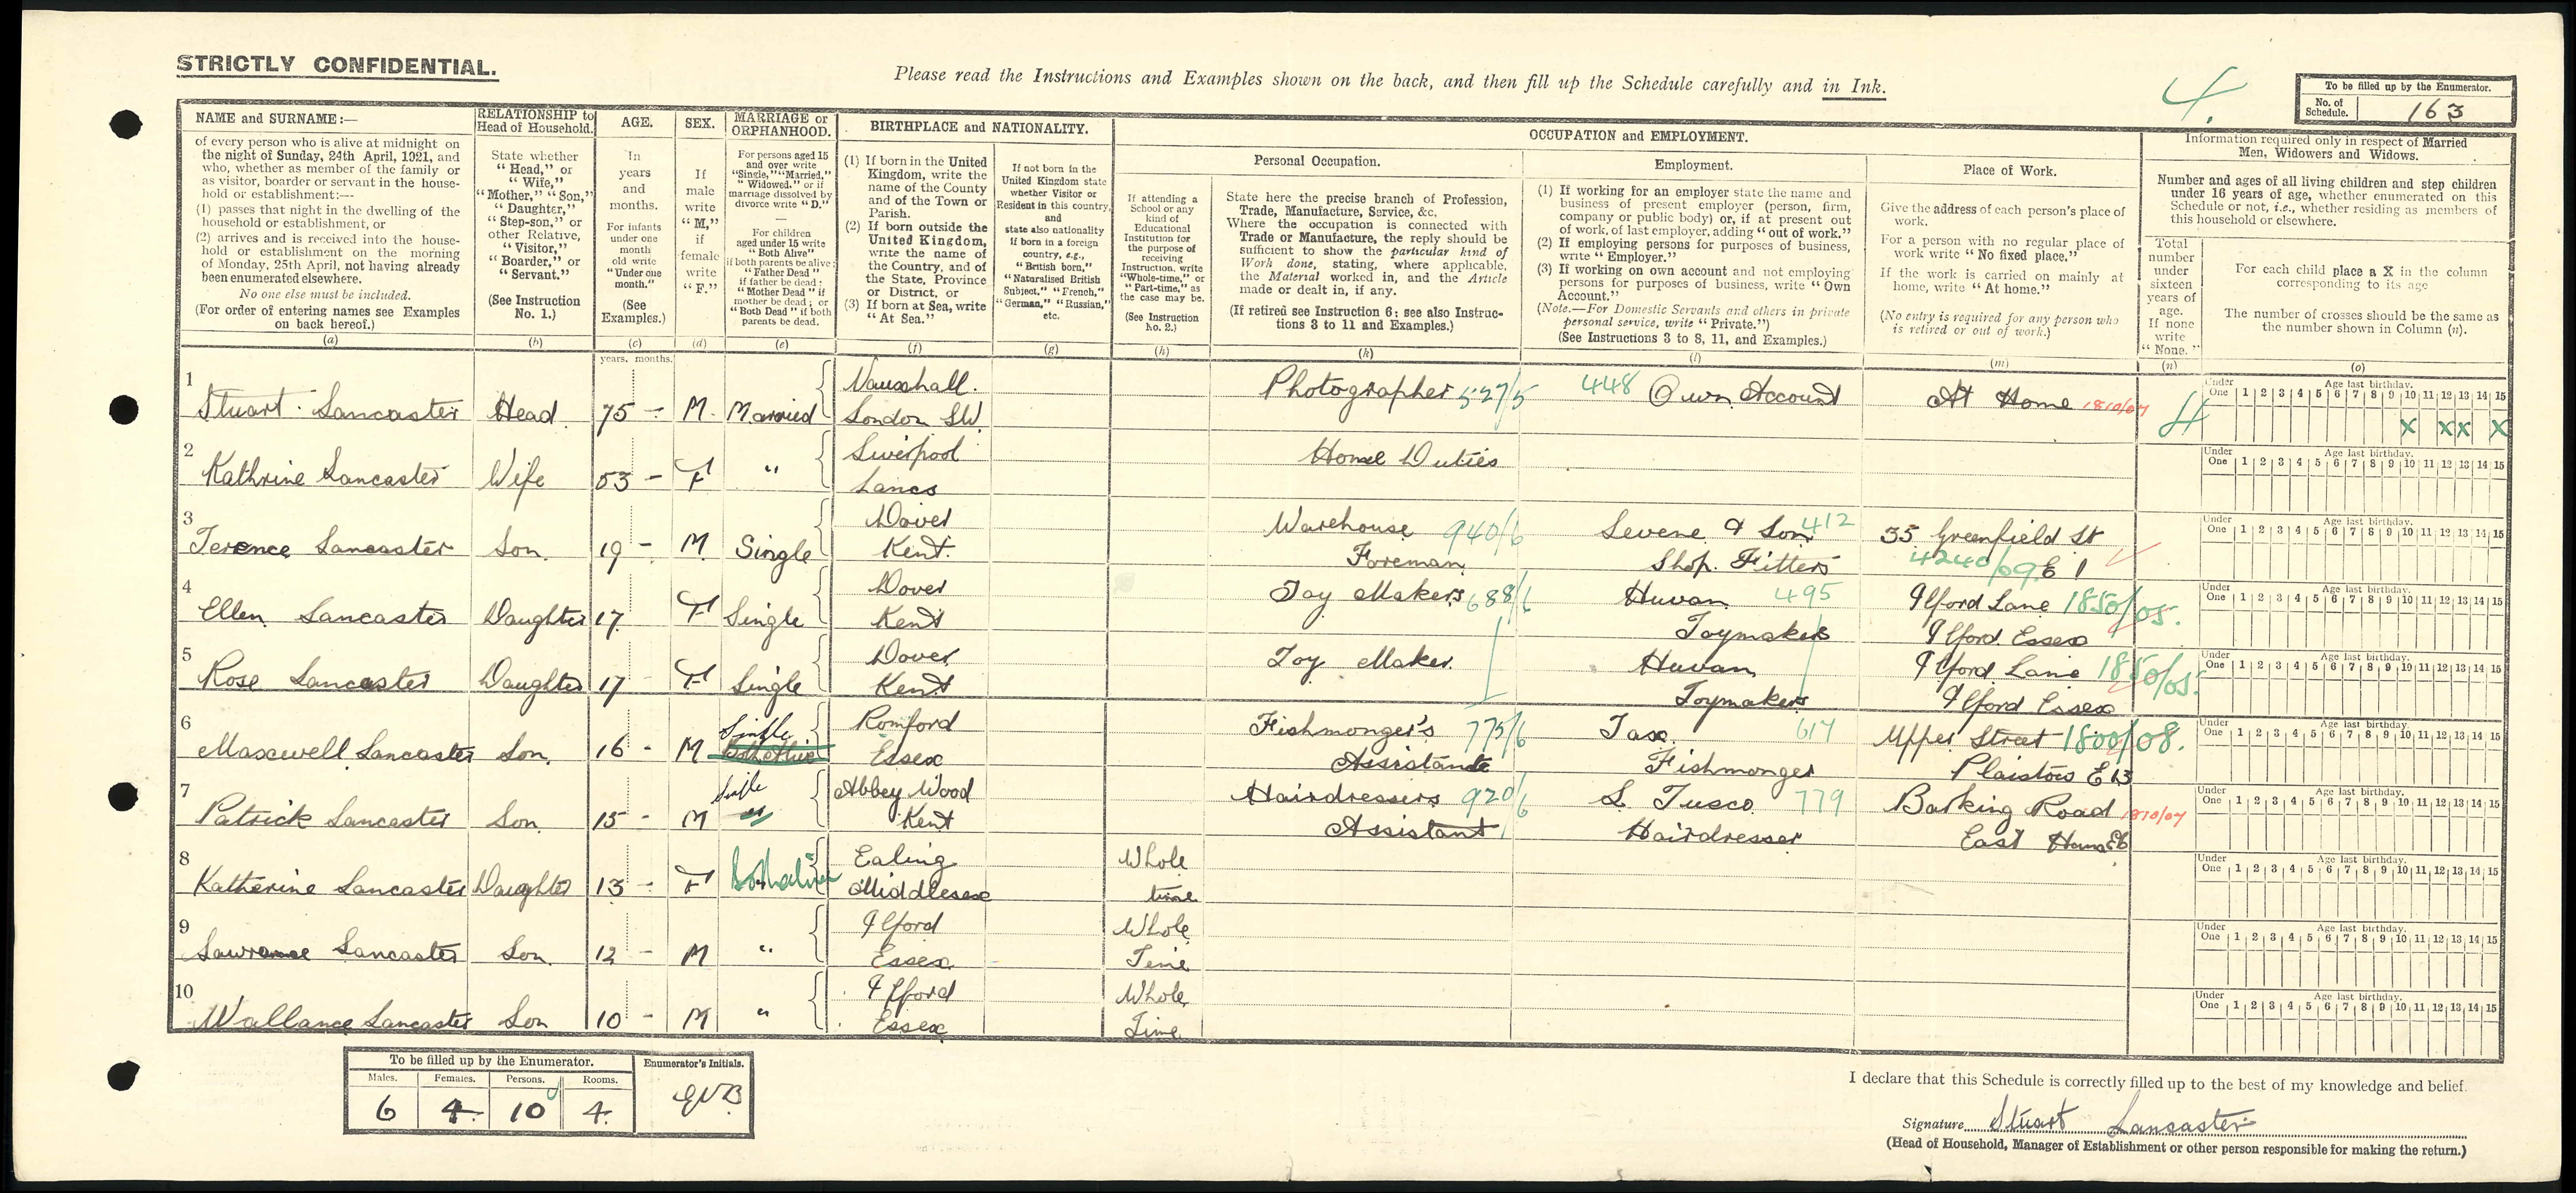 STRICTLY CONFIDENTIAL.
Please read the Instructions and Examples shown on the back, and then fill up the Schedule carefully and in Ink.
4.
To be filled up by the Enumerator.
No. of Schedule. 163
NAME and SURNAME:—
of every person who is alive at midnight on
the night of Sunday, 24th April, 1921, and
who, whether as member of the family or
as visitor, boarder or servant in the house-
hold or establishment:—
(1) passes that night in the dwelling of the
household or establishment, or
(2) arrives and is received into the house-
hold or establishment on the morning
of Monday, 25th April, not having already
been enumerated elsewhere.
No one else must be included.
(For order of entering names see Examples
on back hereof.)
(a)
RELATIONSHIP to
Head of Household.
State whether
"Head," or
"Wife,"
"Mother," "Son,"
"Daughter,"
"Step-son," or
other Relative,
"Visitor,"
"Boarder," or
"Servant."
(See Instruction
No. 1.)
(b)
AGE.
In
years
and
months.
For infants
under one
month
old write
"Under one
month."
(See
Examples.)
(c)
years. months.
SEX.
If
male
write
"M,"
if
female
write
"F."
(d)
MARRIAGE or
ORPHANHOOD.
For persons aged 15
and over write
"Single," "Married,"
"Widowed," or if
marriage dissolved by
divorce write "D."
—
For children
aged under 15 write
"Both Alive"
if both parents be alive;
"Father Dead"
if father be dead;
"Mother Dead" if
mother be dead; or
"Both Dead" if both
parents be dead.
(e)
BIRTHPLACE and NATIONALITY.
(1) If born in the United
Kingdom, write the
name of the County
and of the Town or
Parish.
(2) If born outside the
United Kingdom,
write the name of
the Country, and of
the State, Province
or District, or
(3) If born at Sea, write
"At Sea."
(f)
If not born in the
United Kingdom state
whether Visitor or
Resident in this country,
and
state also nationality
if born in a foreign
country, e.g.,
"British born,"
"Naturalised British
Subject," "French,"
"German," "Russian,"
etc.
(g)
OCCUPATION and EMPLOYMENT.
If attending a
School or any
kind of
Educational
Institution for
the purpose of
receiving
Instruction, write
"Whole-time," or
"Part-time," as
the case may be.
(See Instruction
No. 2.)
(h)
Personal Occupation.
State here the precise branch of Profession,
Trade, Manufacture, Service, &c.
Where the occupation is connected with
Trade or Manufacture, the reply should be
sufficient to show the particular kind of
Work done, stating, where applicable,
the Material worked in, and the Article
made or dealt in, if any.
(If retired see Instruction 6; see also Instruc-
tions 3 to 11 and Examples.)
(k)
Employment.
(1) If working for an employer state the name and
business of present employer (person, firm,
company or public body) or, if at present out
of work, of last employer, adding "out of work."
(2) If employing persons for purposes of business,
write "Employer."
(3) If working on own account and not employing
persons for purposes of business, write "Own
Account."
(Note.—For Domestic Servants and others in private
personal service, write "Private.")
(See Instructions 3 to 8, 11, and Examples.)
(l)
Place of Work.
Give the address of each person's place of
work.
For a person with no regular place of
work write "No fixed place."
If the work is carried on mainly at
home, write "At home."
(No entry is required for any person who
is retired or out of work.)
(m)
Information required only in respect of Married
Men, Widowers and Widows.
Number and ages of all living children and step children
under 16 years of age, whether enumerated on this
Schedule or not, i.e., whether residing as members of
this household or elsewhere.
Total
number
under
sixteen
years of
age.
If none
write
"None."
(n)
For each child place a X in the column
corresponding to its age
The number of crosses should be the same as
the number shown in Column (n).
(o)
1 Stuart Lancaster Head 75 – M. Married Vauxhall. London SW. Photographer 527/5 448 Own Account At Home 1810/07 4
Under One Age last birthday. 1 2 3 4 5 6 7 8 9 10 11 12 13 14 15
x x x x
2 Kathrine Lancaster Wife 53 – F " Liverpool Lancs Home Duties
Under One Age last birthday. 1 2 3 4 5 6 7 8 9 10 11 12 13 14 15
3 Terence Lancaster Son. 19 – M Single Dover Kent. Warehouse Foreman 940/6 Levene & Son 412 Shop. Fitters 35 Greenfield St E 1 4240/09
Under One Age last birthday. 1 2 3 4 5 6 7 8 9 10 11 12 13 14 15
4 Ellen Lancaster Daughter 17 F Single Dover Kent Toy Makers 688/6 Huvan 495 Toymakers Ilford Lane 1850/05. Ilford. Essex
Under One Age last birthday. 1 2 3 4 5 6 7 8 9 10 11 12 13 14 15
5 Rose Lancaster Daughter 17 F Single Dover Kent Toy Maker. Huvan Toymakers Ilford Lane 1850/05. Ilford Essex
Under One Age last birthday. 1 2 3 4 5 6 7 8 9 10 11 12 13 14 15
6 Maxwell Lancaster Son. 16 – M Single Both Alive Romford Essex Fishmonger's Assistant 775/6 617 Fishmonger Upper Street 1800/08. Plaistow E 13
Under One Age last birthday. 1 2 3 4 5 6 7 8 9 10 11 12 13 14 15
7 Patrick Lancaster Son. 15 – M Single " Abbey Wood Kent Hairdressers Assistant 920/6 L Tusco 779 Hairdresser Barking Road 1810/07 East Ham E6
Under One Age last birthday. 1 2 3 4 5 6 7 8 9 10 11 12 13 14 15
8 Katherine Lancaster Daughter 13 – F Both alive Ealing Middlesex Whole time
Under One Age last birthday. 1 2 3 4 5 6 7 8 9 10 11 12 13 14 15
9 Lawrance Lancaster Son. 12 – M " Ilford Essex. Whole Time
Under One Age last birthday. 1 2 3 4 5 6 7 8 9 10 11 12 13 14 15
10 Wallance Lancaster Son 10 – M " Ilford Essex Whole Time
Under One Age last birthday. 1 2 3 4 5 6 7 8 9 10 11 12 13 14 15
To be filled up by the Enumerator.
Males. Females. Persons. Rooms.
6 4 10 4.
Enumerator's Initials.
I declare that this Schedule is correctly filled up to the best of my knowledge and belief.
Signature Stuart Lancaster
(Head of Household, Manager of Establishment or other person responsible for making the return.)